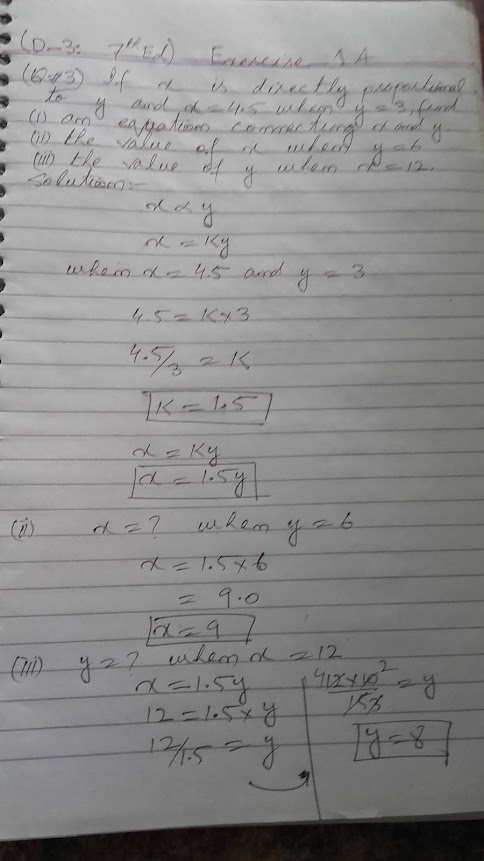 (D-3: 7th Ed) Exercise 1A
(Q#3) If x is directly proportional
to y and x = 4.5 when y = 3, find
(i) an equation connecting x and y.
(ii) the value of x when y = 6
(iii) the value of y when x = 12.
Solution:-
x ∝ y
x = Ky
when x = 4.5 and y = 3
4.5 = K × 3
4.5/3 = K
K = 1.5
x = Ky
x = 1.5y
(ii) x = ? when y = 6
x = 1.5 × 6
= 9.0
x = 9
(iii) y = ? when x = 12
x = 1.5y
12 = 1.5 × y
12/1.5 = y
4 12 × 10 2 / 15 3 = y
y = 8